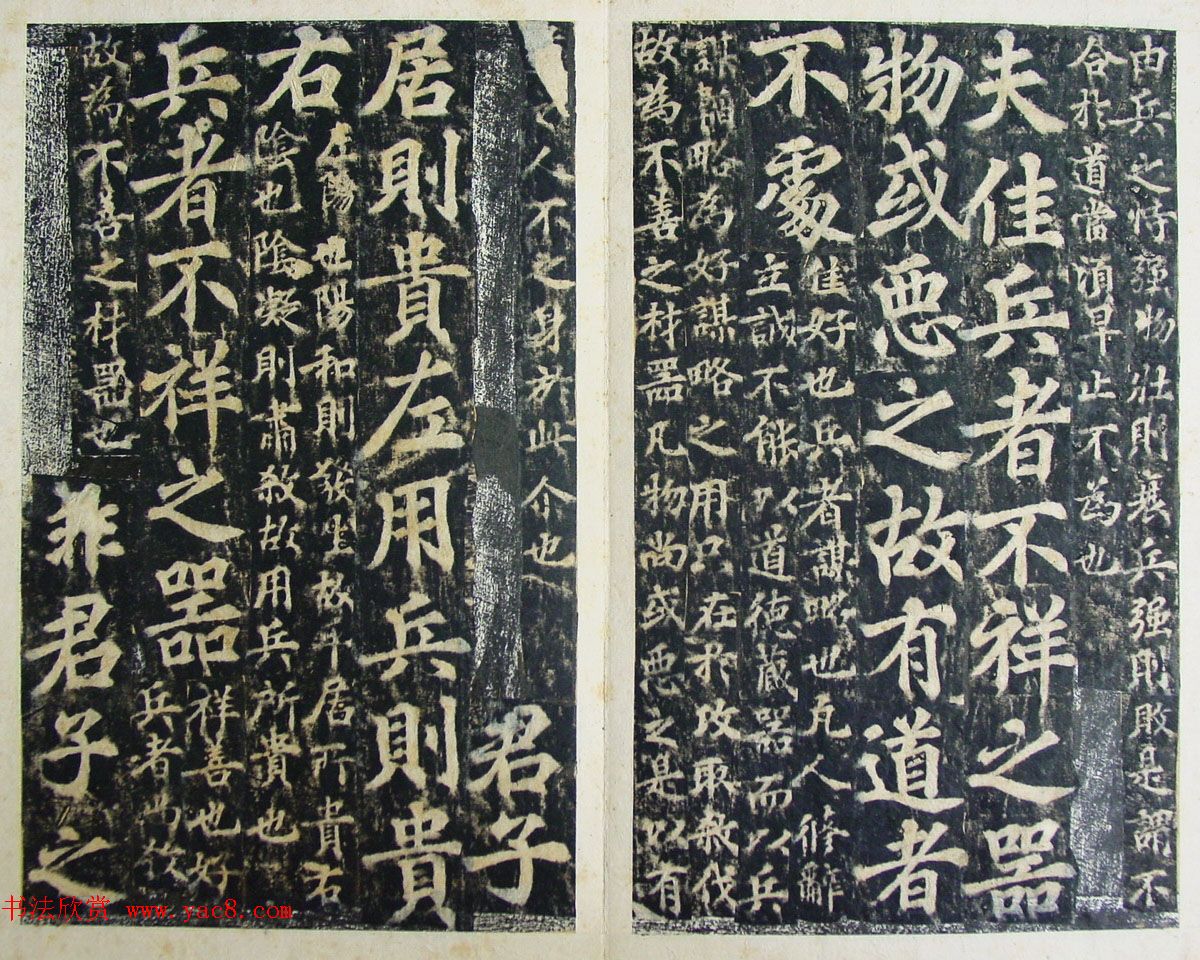 由兵之恃强物壮則衰兵强則敗是謂不
合於道當須早止不為也
夫佳兵者不祥之器
物或惡之故有道者
不處
佳好也兵者謀略也凡人修辭
立誠不能以道德藏器而以兵
謀略之用只在於攻取殺伐
故為不善之材器凡物尚或惡之是以有
人不之身於此介也
君子
居則貴左用兵則貴
右
左陽也陽和則發生故平居所貴右
陰也陰凝則肅殺故用兵所貴也
兵者不祥之器
祥善也好
兵者尚
故為不善之材器也
非君子之
书法欣赏 www.yac8.com